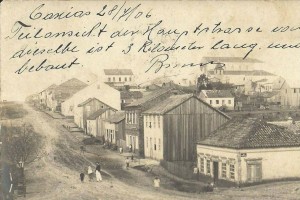 Caxias 28/4/06
Teilansicht der Hauptstrasse von
dieselbe ist 3 Kilometer lang, und
bebaut